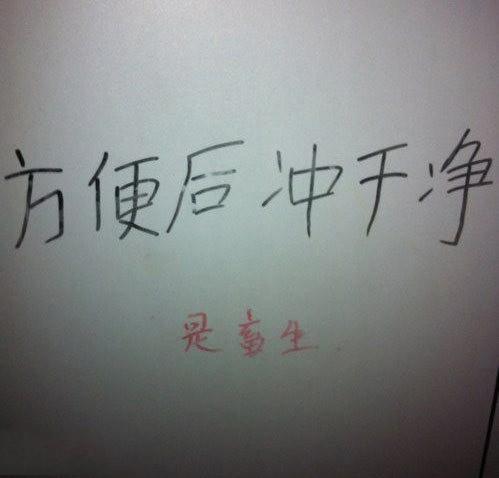 方便后冲干净
是畜生